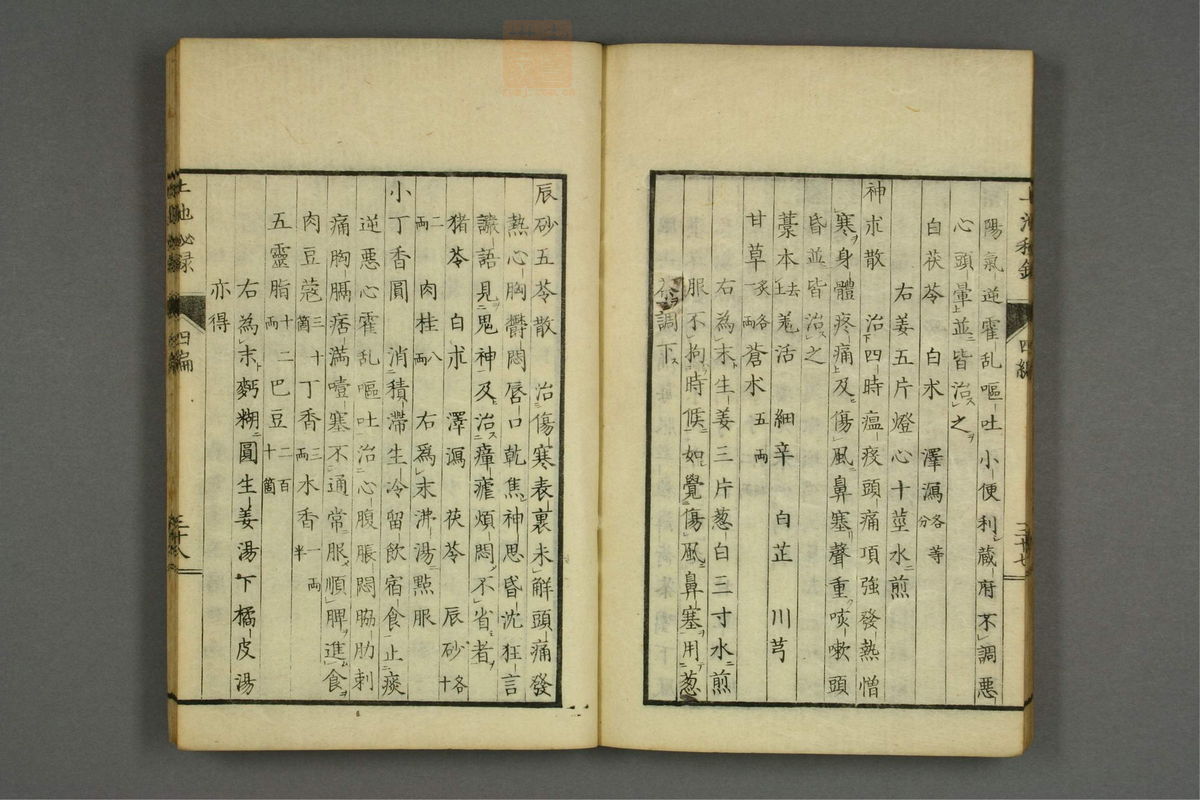 陽氣逆霍乱嘔吐小便利蔵府不調悪
心頭暈並皆治之
白茯苓 白朮 澤瀉各等分
右姜五片燈心十莖水煎
神朮散 治四時瘟疫頭痛項強發熱憎
寒身體疼痛及傷風鼻塞聲重咳嗽頭
昏並皆治之
藁本去 羗活 細辛 白芷 川芎
甘草炙各一兩 蒼朮五兩
右為末生姜三片葱白三寸水煎
服不拘時候如覺傷風鼻塞用葱
茶調下
辰砂五苓散 治傷寒表裏未解頭痛發
熱心胸欝悶唇口乾焦神思昏沈狂言
譫語見鬼神及治瘴瘧煩悶不省者
猪苓 白朮 澤瀉 茯苓 辰砂各十
二兩 肉桂八兩 右為末沸湯點服
小丁香圓 消積滯生冷留飲宿食止痰
逆悪心霍乱嘔吐治心腹脹悶脇肋刺
痛胸膈痞満噎塞不通常服順脾進食
肉豆蔻三十箇 丁香三兩 木香一兩半
五靈脂十二兩 巴豆二百十箇
右為末麪糊圓生姜湯下橘皮湯
亦得
四編
三十八